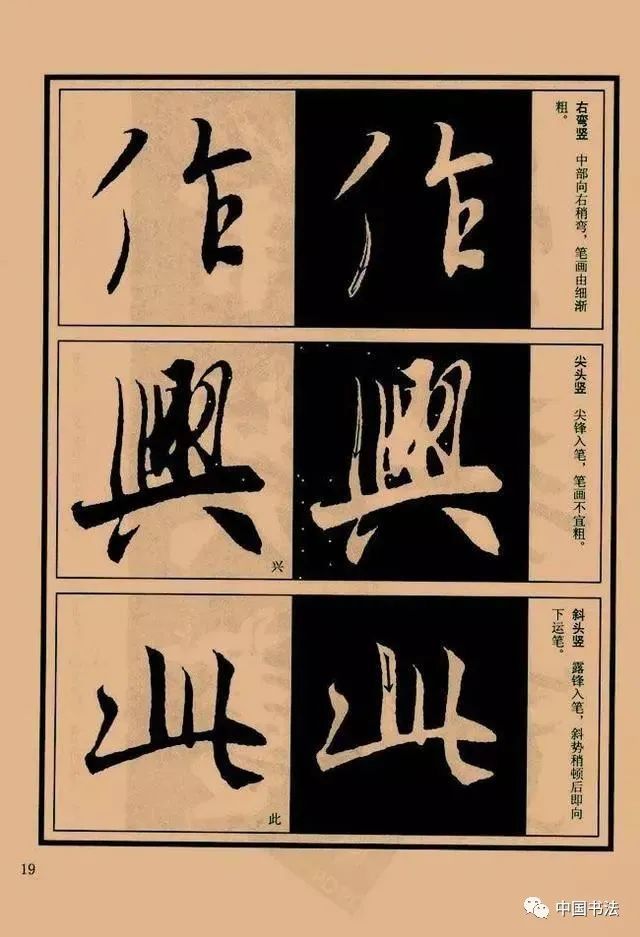 右弯竖　中部向右稍弯，笔画由细渐
粗。
作
作
尖头竖　尖锋入笔，笔画不宜粗。
興
興
兴
斜头竖　露锋入笔，斜势稍顿后即向
下运笔。
此
此
此
19
中国书法